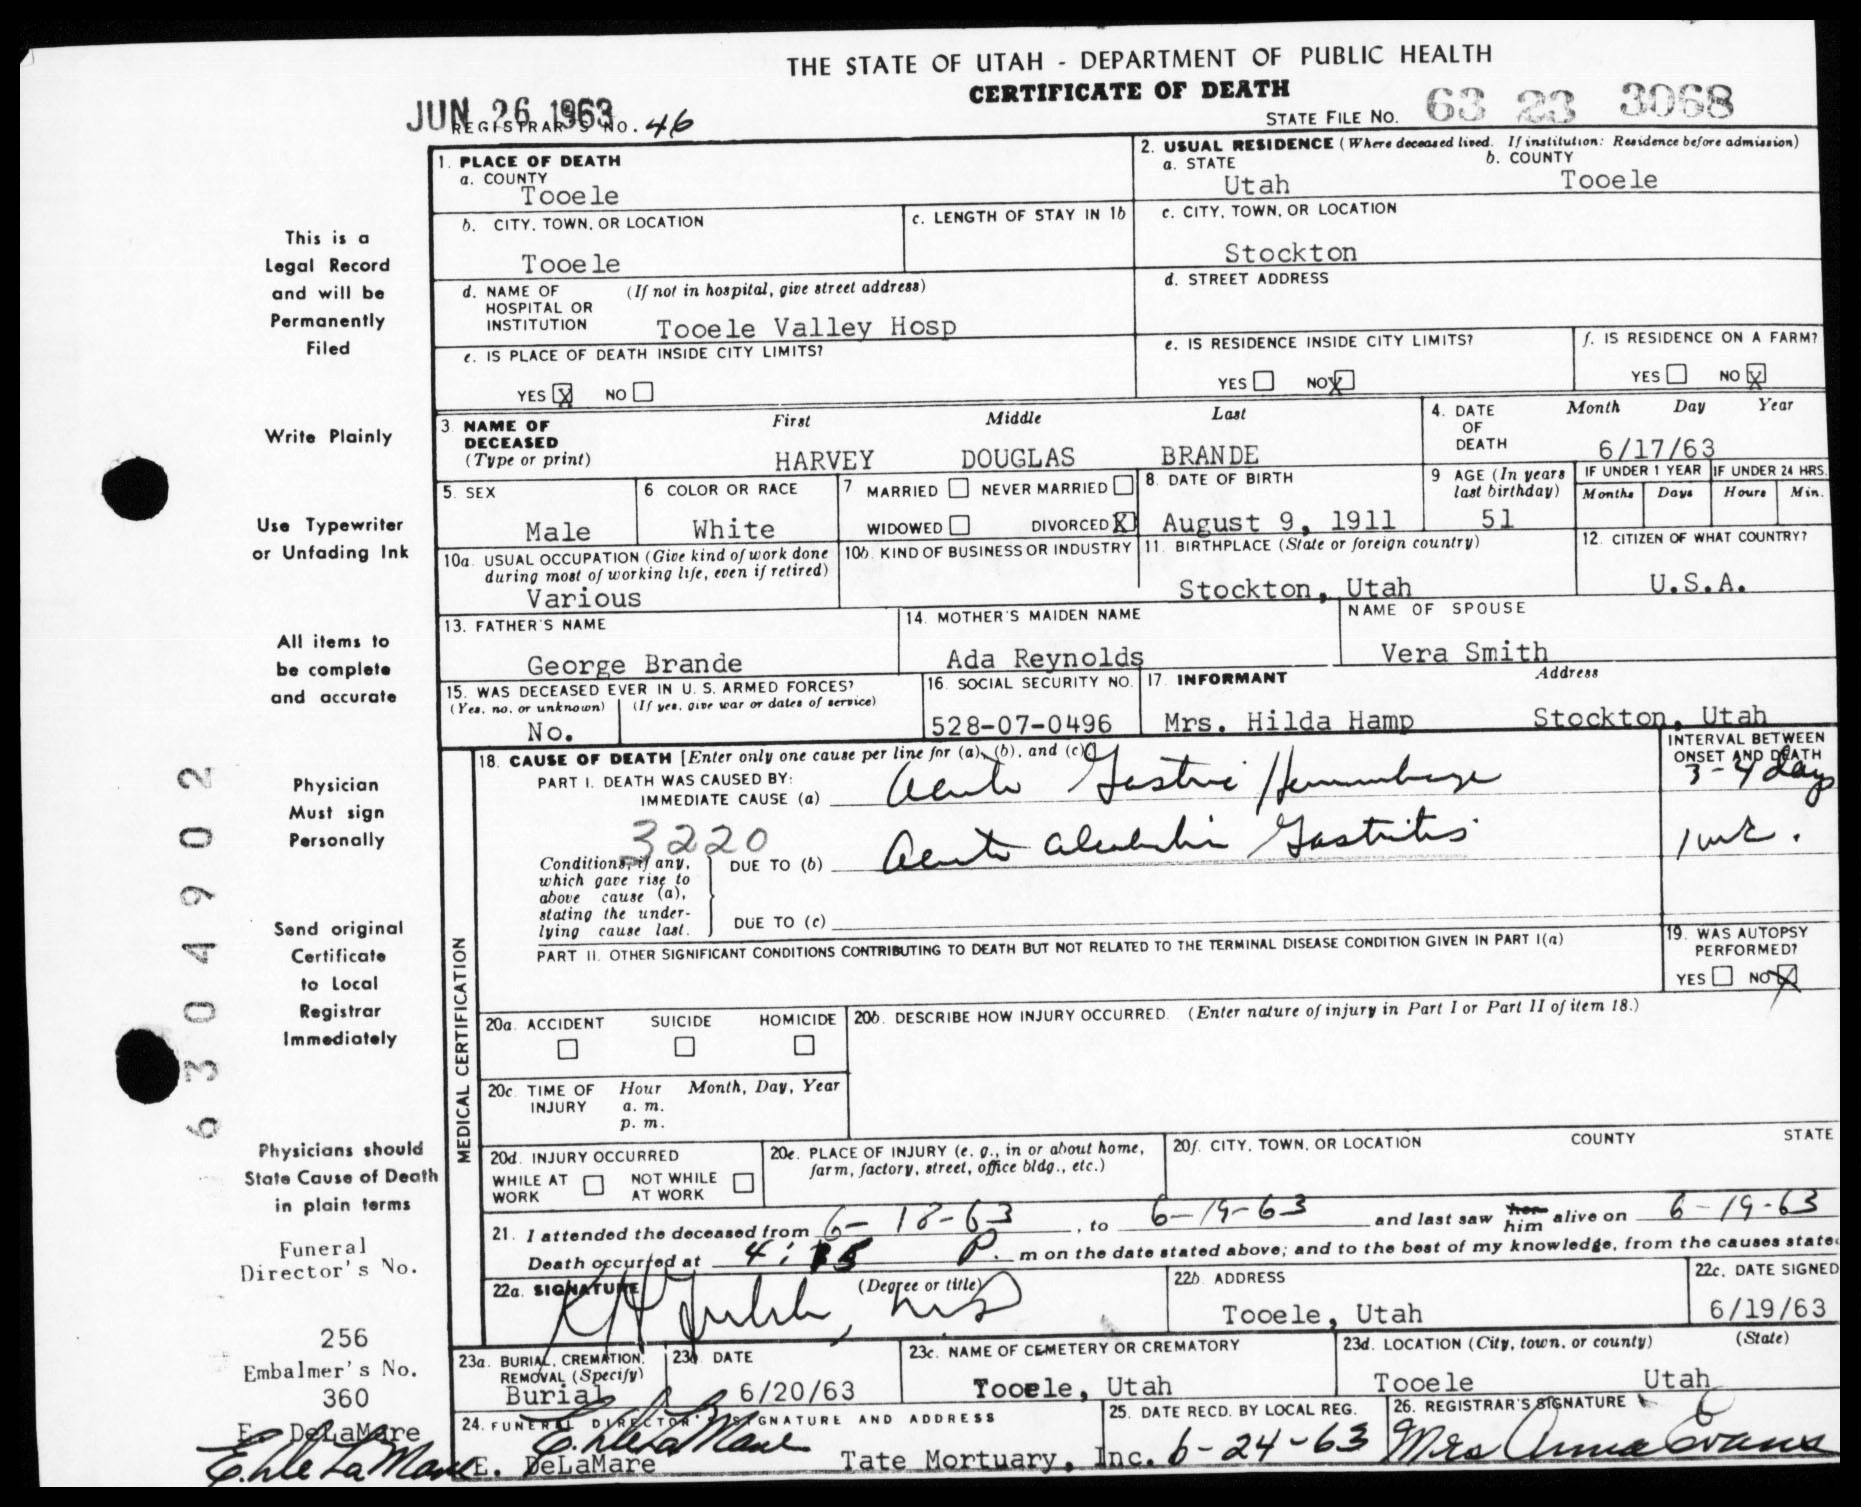 THE STATE OF UTAH - DEPARTMENT OF PUBLIC HEALTH
CERTIFICATE OF DEATH
JUN 26 1963
REGISTRAR'S NO. 46
STATE FILE NO. 63 23 3068
This is a
Legal Record
and will be
Permanently
Filed
Write Plainly
Use Typewriter
or Unfading Ink
All items to
be complete
and accurate
Physician
Must sign
Personally
Send original
Certificate
to Local
Registrar
Immediately
Physicians should
State Cause of Death
in plain terms
Funeral
Director's No.
256
Embalmer's No.
360
E. DeLaMare
E. DeLaMare
6304902
1. PLACE OF DEATH
a. COUNTY
Tooele
2. USUAL RESIDENCE (Where deceased lived. If institution: Residence before admission)
a. STATE
Utah
b. COUNTY
Tooele
b. CITY, TOWN, OR LOCATION
Tooele
c. LENGTH OF STAY IN 1b
c. CITY, TOWN, OR LOCATION
Stockton
d. NAME OF HOSPITAL OR INSTITUTION
(If not in hospital, give street address)
Tooele Valley Hosp
d. STREET ADDRESS
e. IS PLACE OF DEATH INSIDE CITY LIMITS?
YES X NO
e. IS RESIDENCE INSIDE CITY LIMITS?
YES NO X
f. IS RESIDENCE ON A FARM?
YES NO X
3 NAME OF DECEASED
(Type or print)
First Middle Last
HARVEY DOUGLAS BRANDE
4. DATE OF DEATH
Month Day Year
6/17/63
5. SEX
Male
6 COLOR OR RACE
White
7 MARRIED NEVER MARRIED
WIDOWED DIVORCED X
8. DATE OF BIRTH
August 9, 1911
9 AGE (In years last birthday)
51
IF UNDER 1 YEAR
Months Days
IF UNDER 24 HRS.
Hours Min.
10a. USUAL OCCUPATION (Give kind of work done
during most of working life, even if retired)
Various
10b. KIND OF BUSINESS OR INDUSTRY
11. BIRTHPLACE (State or foreign country)
Stockton, Utah
12. CITIZEN OF WHAT COUNTRY?
U.S.A.
13. FATHER'S NAME
George Brande
14. MOTHER'S MAIDEN NAME
Ada Reynolds
NAME OF SPOUSE
Vera Smith
15. WAS DECEASED EVER IN U. S. ARMED FORCES?
(Yes, no, or unknown) (If yes, give war or dates of service)
No.
16. SOCIAL SECURITY NO.
528-07-0496
17. INFORMANT Address
Mrs. Hilda Hamp Stockton, Utah
MEDICAL CERTIFICATION
18. CAUSE OF DEATH [Enter only one cause per line for (a), (b), and (c)]
PART I. DEATH WAS CAUSED BY:
IMMEDIATE CAUSE (a) Acute Gastric Hemorrhage
INTERVAL BETWEEN ONSET AND DEATH
3-4 days
3220
Conditions, if any,
which gave rise to
above cause (a),
stating the under-
lying cause last.
DUE TO (b) Acute Alcoholic Gastritis
1 wk.
DUE TO (c)
PART II. OTHER SIGNIFICANT CONDITIONS CONTRIBUTING TO DEATH BUT NOT RELATED TO THE TERMINAL DISEASE CONDITION GIVEN IN PART I(a)
19. WAS AUTOPSY PERFORMED?
YES NO X
20a. ACCIDENT SUICIDE HOMICIDE
20b. DESCRIBE HOW INJURY OCCURRED. (Enter nature of injury in Part I or Part II of item 18.)
20c. TIME OF INJURY
Hour Month, Day, Year
a. m.
p. m.
20d. INJURY OCCURRED
WHILE AT WORK NOT WHILE AT WORK
20e. PLACE OF INJURY (e. g., in or about home,
farm, factory, street, office bldg., etc.)
20f. CITY, TOWN, OR LOCATION COUNTY STATE
21. I attended the deceased from 6-18-63, to 6-19-63 and last saw her him alive on 6-19-63
Death occurred at 4:15 P. m on the date stated above; and to the best of my knowledge, from the causes state
22a. SIGNATURE (Degree or title)
22b. ADDRESS
Tooele, Utah
22c. DATE SIGNED
6/19/63
23a. BURIAL, CREMATION,
REMOVAL (Specify)
Burial
23b. DATE
6/20/63
23c. NAME OF CEMETERY OR CREMATORY
Tooele, Utah
23d. LOCATION (City, town, or county) (State)
Tooele Utah
24. FUNERAL DIRECTOR'S SIGNATURE AND ADDRESS
E. DeLaMare
E. DeLaMare Tate Mortuary, Inc.
25. DATE RECD. BY LOCAL REG.
6-24-63
26. REGISTRAR'S SIGNATURE
Mrs Anna Evans